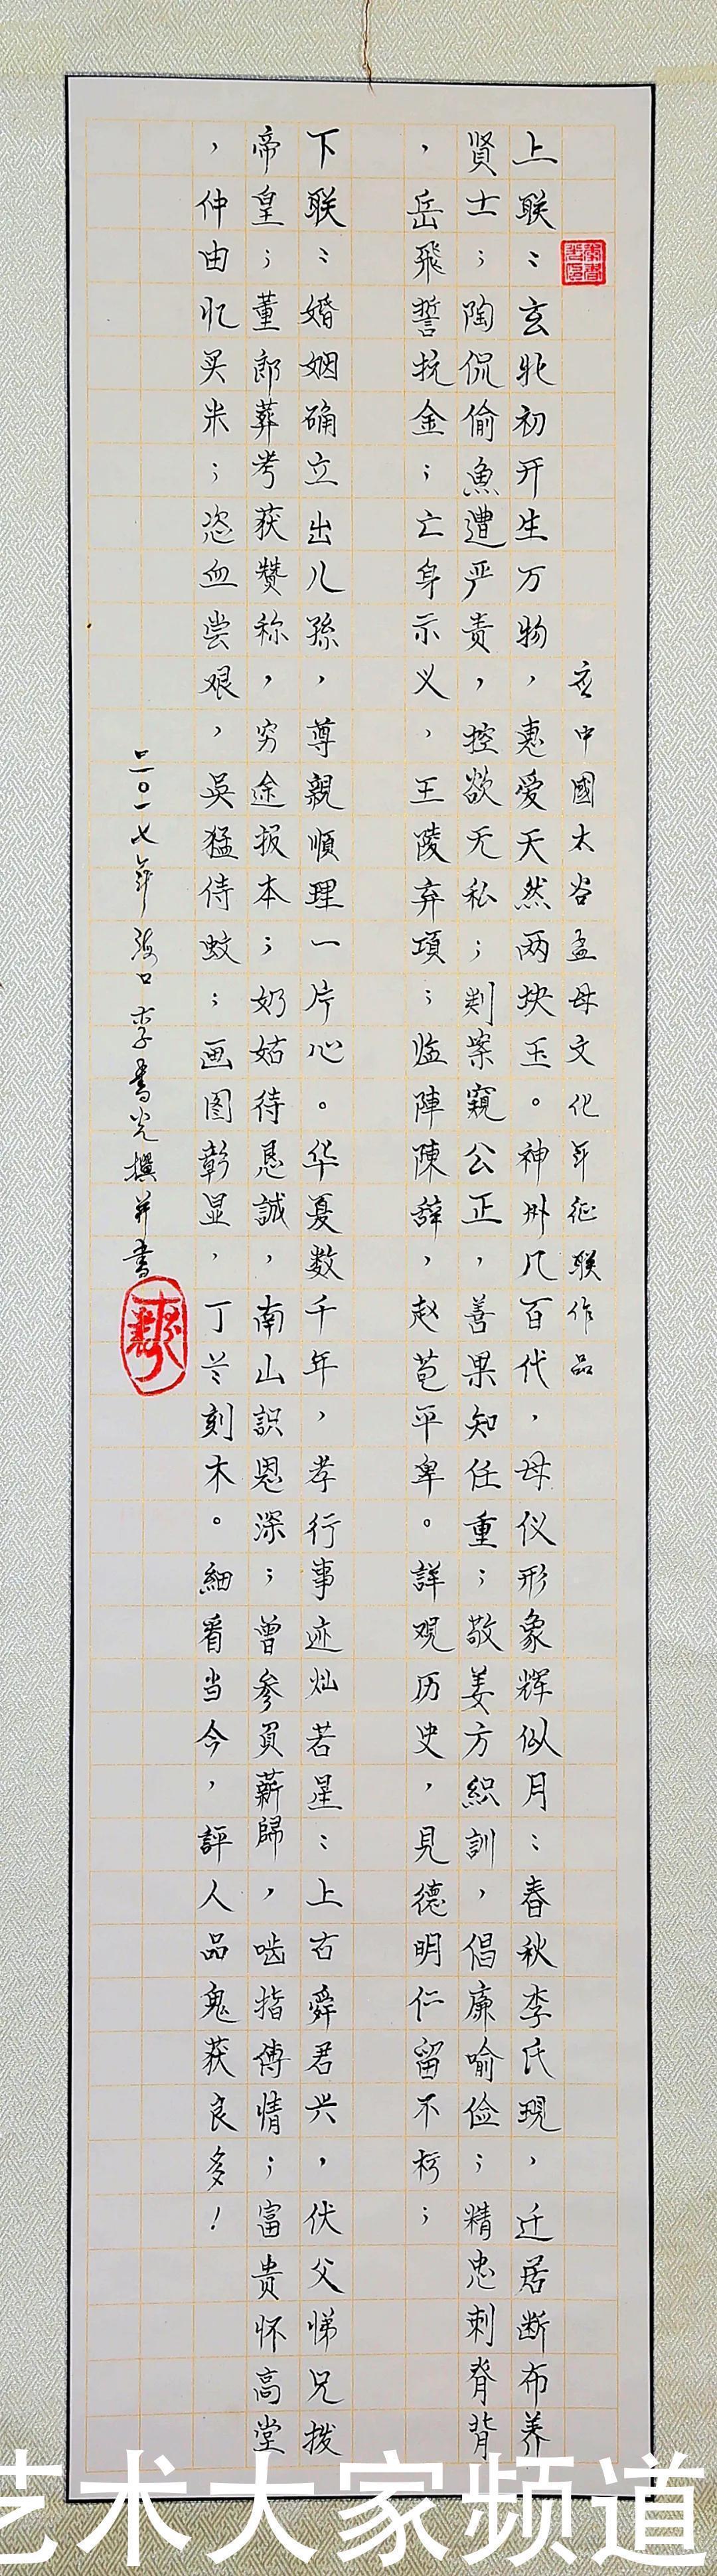 应中國太谷孟母文化年征联作品
上联：玄牝初开生万物，惠爱天然两块玉。神州几百代，母仪形象辉似月：春秋李氏现，迁居断布养
賢士；陶侃偷魚遭严责，控欲无私；判案窺公正，善果知任重；敬姜方織訓，倡廉喻俭；精忠刺脊背
，岳飛誓抗金；亡身示义，王陵弃項；临陣陳辞，赵苞平寇。詳观历史，見德明仁留不朽；
下联：婚姻确立出儿孫，尊親順理一片心。华夏数千年，孝行事迹灿若星：上古舜君兴，伏父悌兄拨
帝皇；董郎葬考获赞称，穷途报本；奶姑待恳誠，南山識恩深；曾參負薪歸，啮指傅情；富贵怀高堂
，仲由忆买米；恣血尝艰，吳猛侍蚊；画图彰显，丁兰刻木。細看当今，評人品鬼获良多！
二〇一七年海口李書光撰并書
艺术大家频道